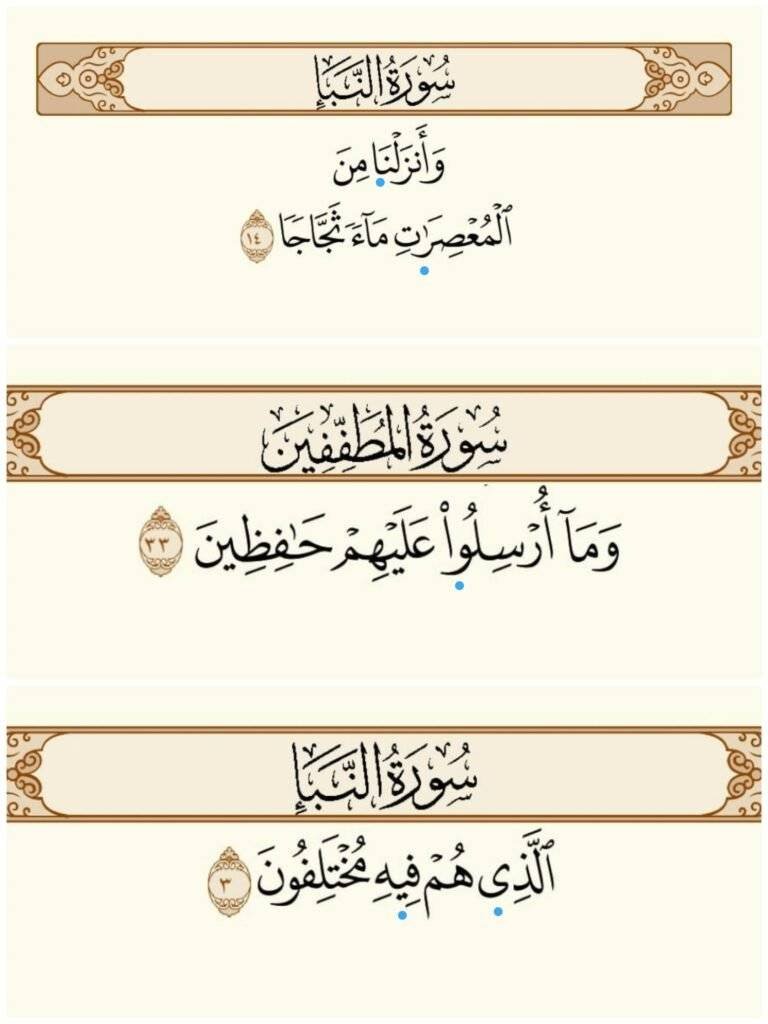 سُورَةُ النَّبَإِ
وَأَنزَلۡنَا مِنَ
ٱلۡمُعۡصِرَٰتِ مَآءٗ ثَجَّاجٗا ١٤
سُورَةُ المُطَفِّفِينَ
وَمَآ أُرۡسِلُواْ عَلَيۡهِمۡ حَٰفِظِينَ ٣٣
سُورَةُ النَّبَإِ
ٱلَّذِي هُمۡ فِيهِ مُخۡتَلِفُونَ ٣